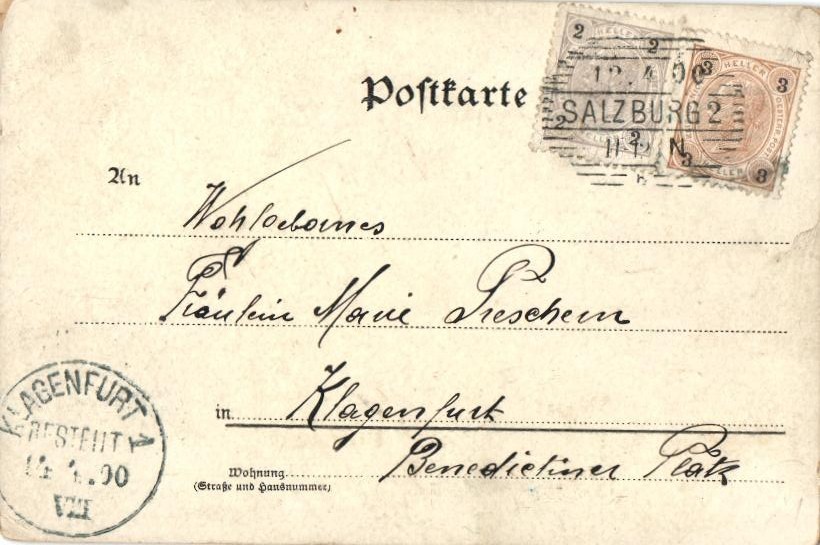 Postkarte
2 HELLER 2
2 2
3 HELLER 3
3 HELLER 3
12.4.00
SALZBURG 2
11-12 N
An
Wohlgebornes
Fräulein Marie
in Klagenfurt
Wohnung Benedictiner Platz
(Straße und Hausnummer)
KLAGENFURT 1
BESTELLT
4.00
VIII